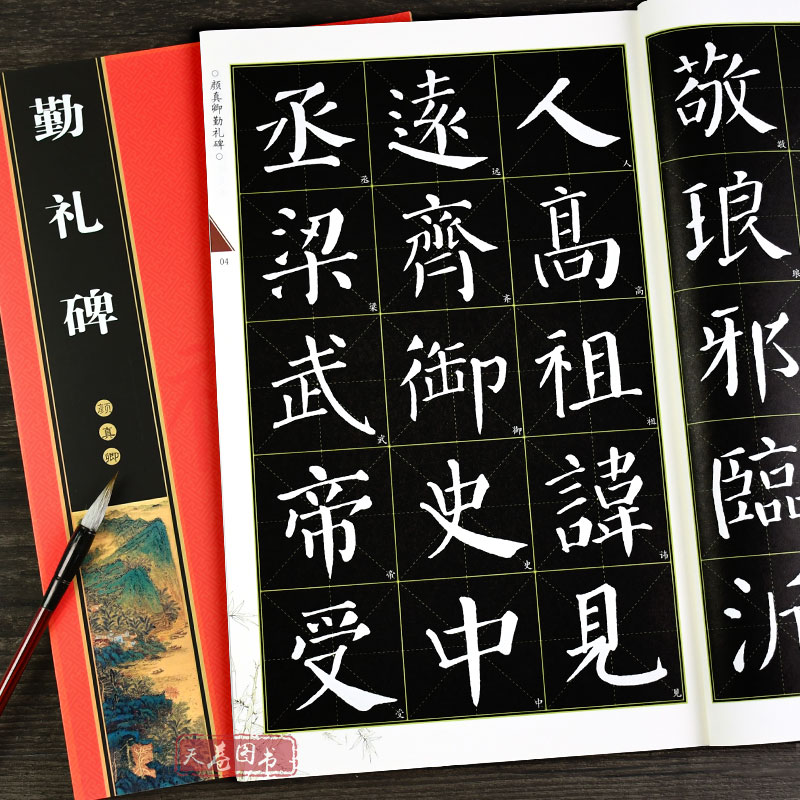 勤礼碑
颜真卿
敬琅邪臨沂
敬琅
人高祖諱見
人高祖讳见
遠齊御史中
远齐御史中
丞梁武帝受
丞梁武帝受
○颜真卿勤礼碑○
04
天卷图书